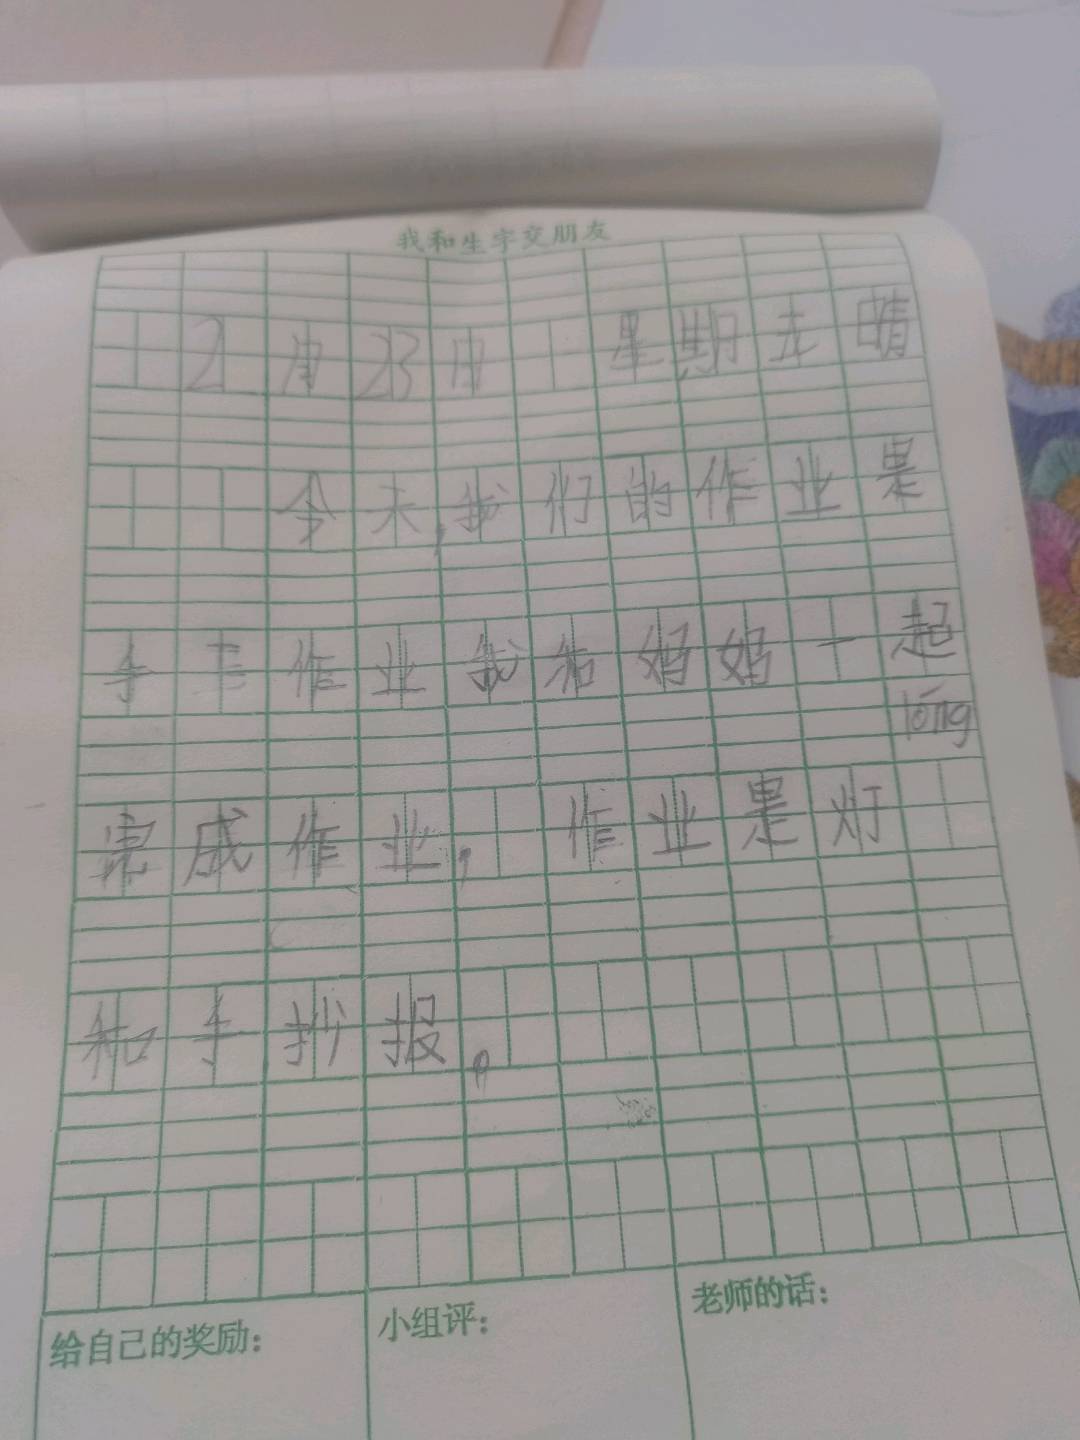 我和生字交朋友
2月23日 星期五 晴
今天,我们的作业是
手工作业我和妈妈一起
lóng
完成作业, 作业是灯
和手抄报。
给自己的奖励:
小组评:
老师的话: